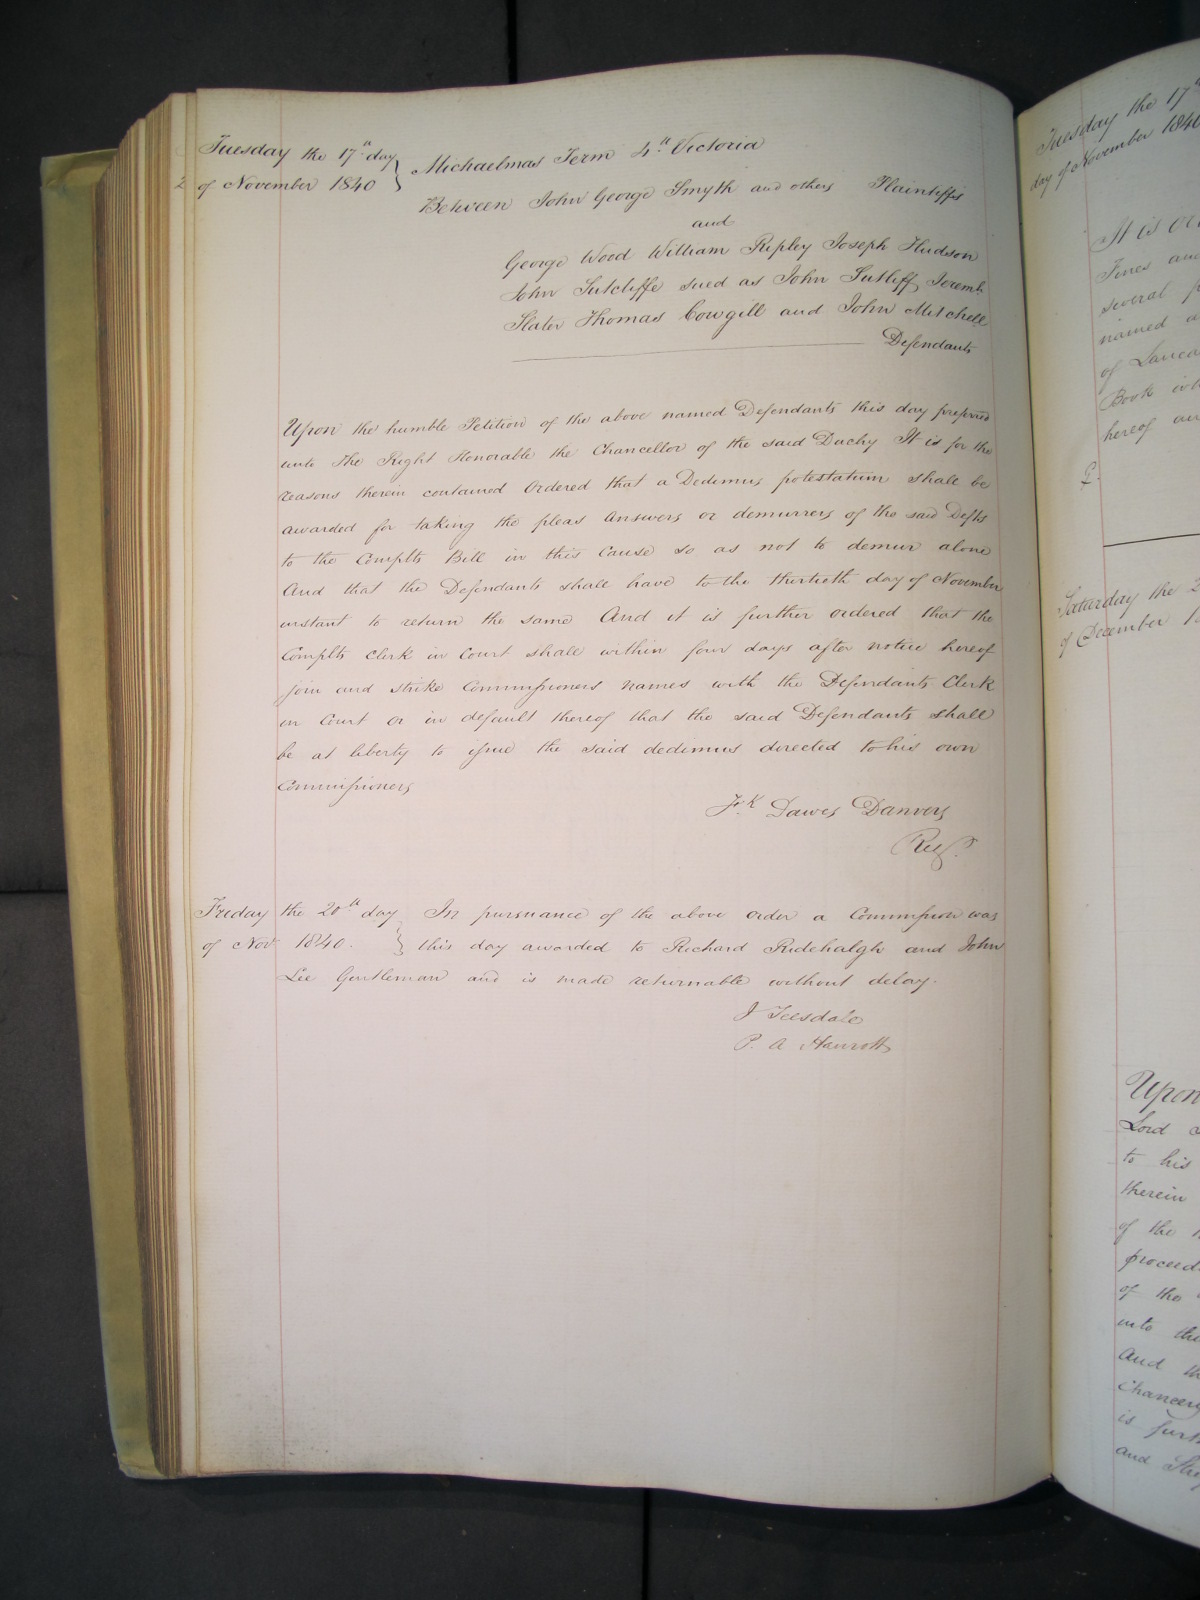 Tuesday the 17th day
of November 1840
Michaelmas Term 4th Victoria
Between John George Smyth and others Plaintiffs
and
George Wood William Ripley Joseph Hudson
John Sutcliffe sued as John Sutliff Jeremh
Slater Thomas Cowgill and John Mitchell
Defendants
Upon the humble Petition of the above named Defendants this day preferred
unto The Right Honorable the Chancellor of the said Duchy It is for the
reasons therein contained Ordered that a Dedimus potestatum shall be
awarded for taking the pleas Answers or demurrers of the said Defts
to the Complts Bill in this Cause so as not to demur alone
And that the Defendants shall have to the thirtieth day of November
instant to return the same And it is further ordered that the
Complts clerk in Court shall within four days after notice hereof
join and strike Commissioners names with the Defendants Clerk
in Court or in default thereof that the said Defendants shall
be at liberty to issue the said dedimus directed to his own
Commissioners
Frk Dawes Danvers
Regr
Friday the 20th day
of Nov 1840.
In pursuance of the above order a Commission was
this day awarded to Richard Ridehalgh and John
Lee Gentleman and is made returnable without delay.
J Teesdale
P. A Hanrott
Tuesday the 17th
day of November 1840
It is
Fines and
several
named
of
Book
hereof
Saturday the
of December
Upon
Lord
to his
therein
of the
of the
unto the
And
Chancery
is
and